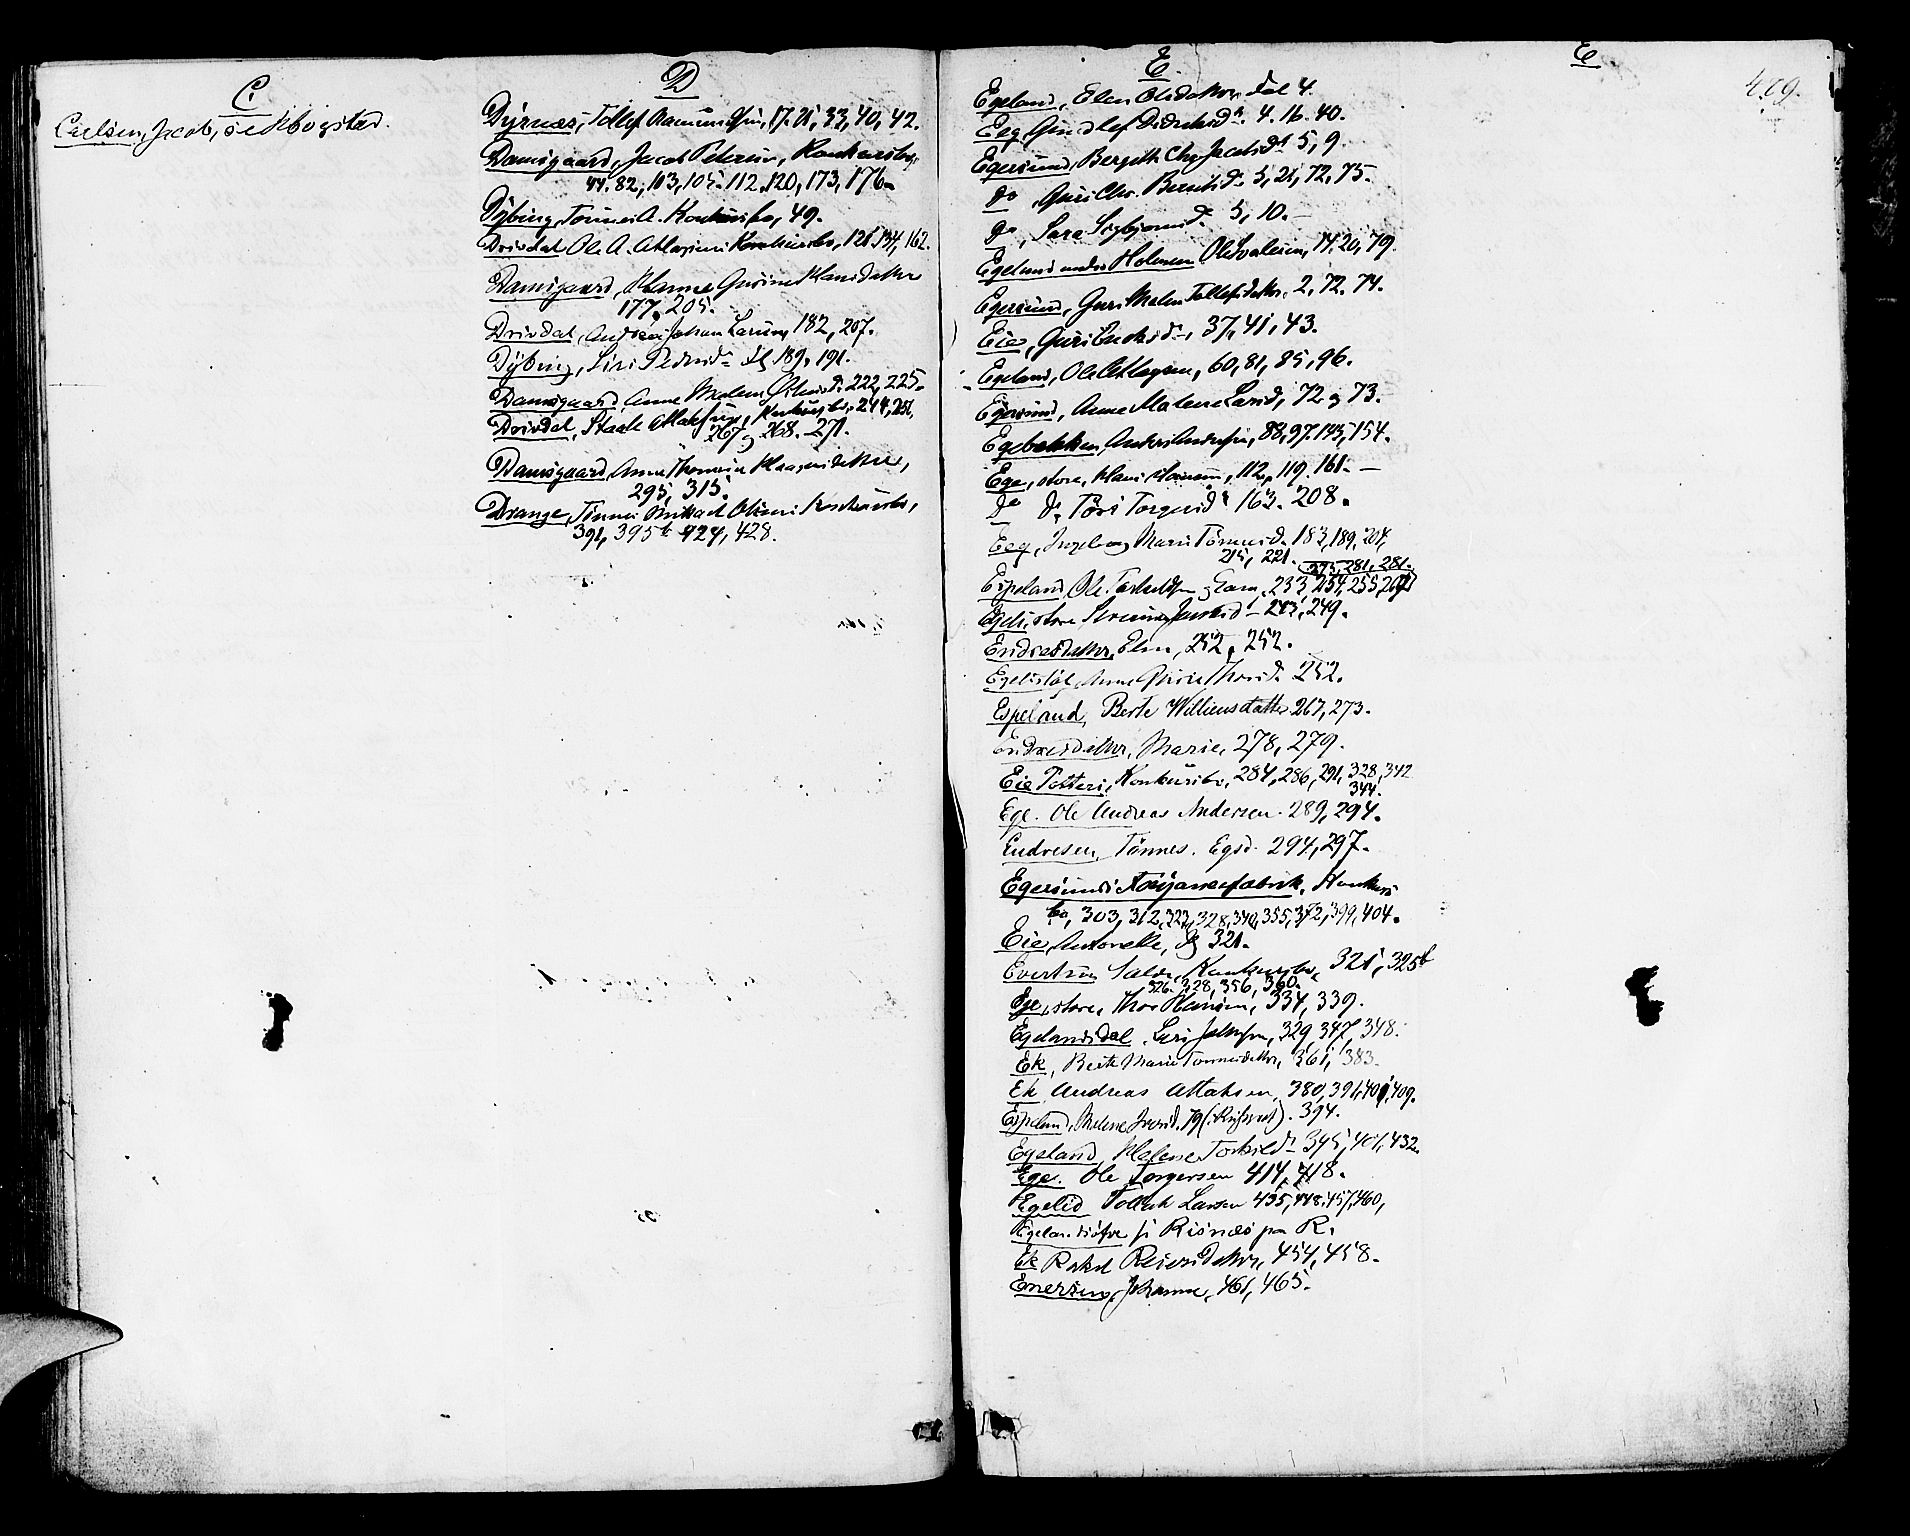 C.
Carlsen, Jacob, se Kbogstad.
D
Dyrnæs, Tollef Aamundsen, 17. 21, 33, 40, 42.
Damsgaard, Jacob Petersen, Konkursbo,
44. 82, 103, 105. 112. 120, 173, 176.
Dybing, Tönnes A. Konkursbo, 49.
Drivdal Ole A. Atlaksens Konkursbo, 121. 134, 162.
Damsgaard, Hanne Gurine Hansdatter
177, 205.
Drivdal, Andreas Johan Larsen, 182, 207.
Dybing, Siri Pedersd. 189, 191.
Damsgaard, Anne Malene 222, 225.
Drivdal, Staale Atlaksens Konkursbo, 244, 251,
267, 268. 271.
Damsgaard, Anne Thomine Klausdatter,
295, 315.
Drange, Tönnes Mikael Olsens Konkursbo,
391, 395 424, 428.
E.
Egeland, Elen Olsdatter 4.
Eeg, Gundlef 4. 16. 40.
Egersund, Bergitte Chr. Jacobsd. 5, 9.
do, Guri Chr. Berntsd. 5, 21, 72, 75.
do, Sara Sigbjørnsd. 5, 10.
Egelund Holmen Ole 14. 20, 79.
Egersund, Guri Malene Tollefsdatter, 2, 72. 74.
Eie, Guri 37, 41, 43.
Egeland, Ole Atlagsen, 60, 81, 85, 96.
Egersund, Anne Malene Larsd, 72 og 73.
Egebakken, Anders Andersen, 88, 97. 145, 154.
Ege, store, Hans Hansen, 112, 119. 161.
do do Töri Torgersd. 163. 208.
Eeg, Ingeborg Marie Tönnesd. 183, 189, 204,
215, 221.
275, 281, 281.
Espeland, Ole 233, 254, 255, 267
Ege, store 243, 249.
Endresdatter, Elen, 252, 252.
Anne Thorsd. 252.
Espeland, Berte Williamsdatter 267, 273.
Endresdatter, Marie, 278, 279.
Eie Potteri, Konkursbo, 284, 286, 291, 328, 342
344.
Ege. Ole Andreas Andersen. 289, 294.
Endresen, Tönnes. Egsd. 294, 297.
Egersunds Fayancefabrik, Konkurs
bo, 303, 312, 323, 328, 340, 355, 372, 399, 404.
Eie, Antonette, 321.
Evertsen Konkursbo, 321, 325
326. 328, 356, 360.
Ege, store, Thor Hansen, 334, 339.
Egelandsdal, 329, 347, 348.
Ek, Berte Marie Tönnesdatter, 361, 383.
Ek Andreas Attaksen, 380, 391, 409.
Espeland, Malene 394.
Egeland, Helene Torkild 345, 401, 432.
Ege. Ole Torgersen 414, 418.
Egelid Tollak Larsen 435, 448. 457, 460,
Risnæs paa R.
Ek Rakel Reiersdatter, 454, 458.
Emersen, Johanne, 461, 465.
E
479.